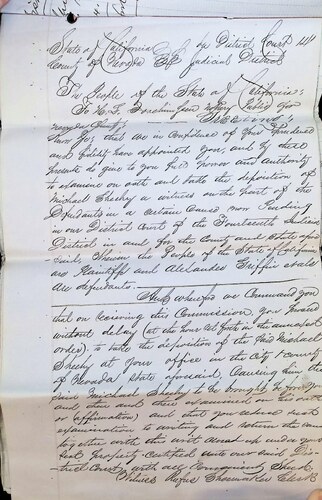 State of California
County of Nevada
In District Court 14th
Judicial District
The People of the State of California
To
Greeting
Know you that we in confidence of your prudence
and fidelity have appointed you, and by these
presents do give to you full power and authority
to examine on oath and take the deposition of
Michael Sheehy a witness on the part of the
Defendants in a certain cause now Pending
in our District Court of the Fourteenth Judicial
District in and for the County and State afore
said, Wherein the People of the State of California
are Plaintiff and Griffin et als
are defendants.
And wherefore we Command you
that on receiving this Commission you proceed
without delay (at the hour set forth in the annexed
order), to take the deposition of the said Michael
Sheehy at your office in the City & County
of Nevada State aforesaid, Causing him the
said Michael Sheehy to be brought before you
and then and there examined on his oath
or affirmation, and that you reduce such
examination to writing and return the same
together with this writ under your
Seal Properly certified unto our said Dis-
trict Court with all Convenient Speed
Witness Rufus Shoemaker Clerk